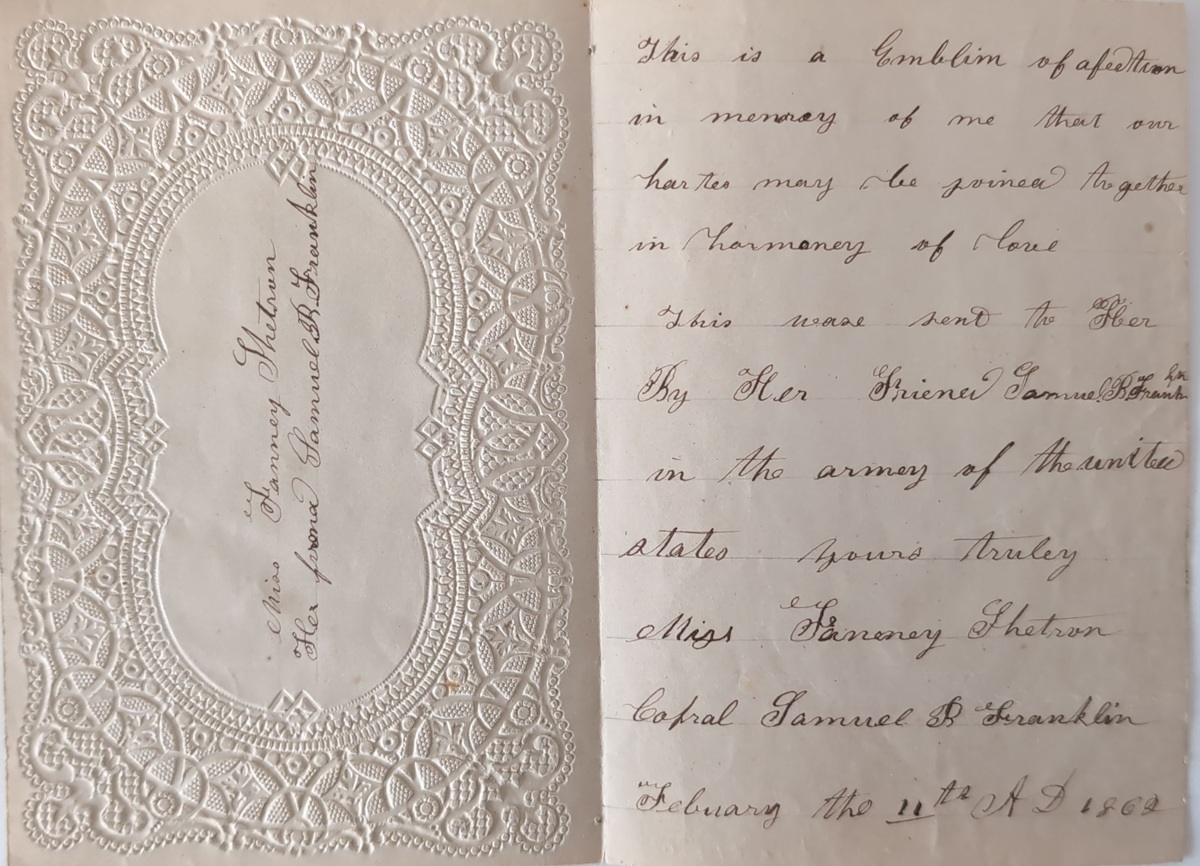 Miss Fanney Shetron
Her frend Samuel B. Franklin
This is a Emblim of afection
in memory of me that our
hartes may be joined together
in harmoney of love
This wase sent to Her
By Her Friend Samuel B. Franklin
in the armey of the united
states yours truley
Miss Fanney Shetron
Copral Samuel B Franklin
Febuary the 11th A D 1862